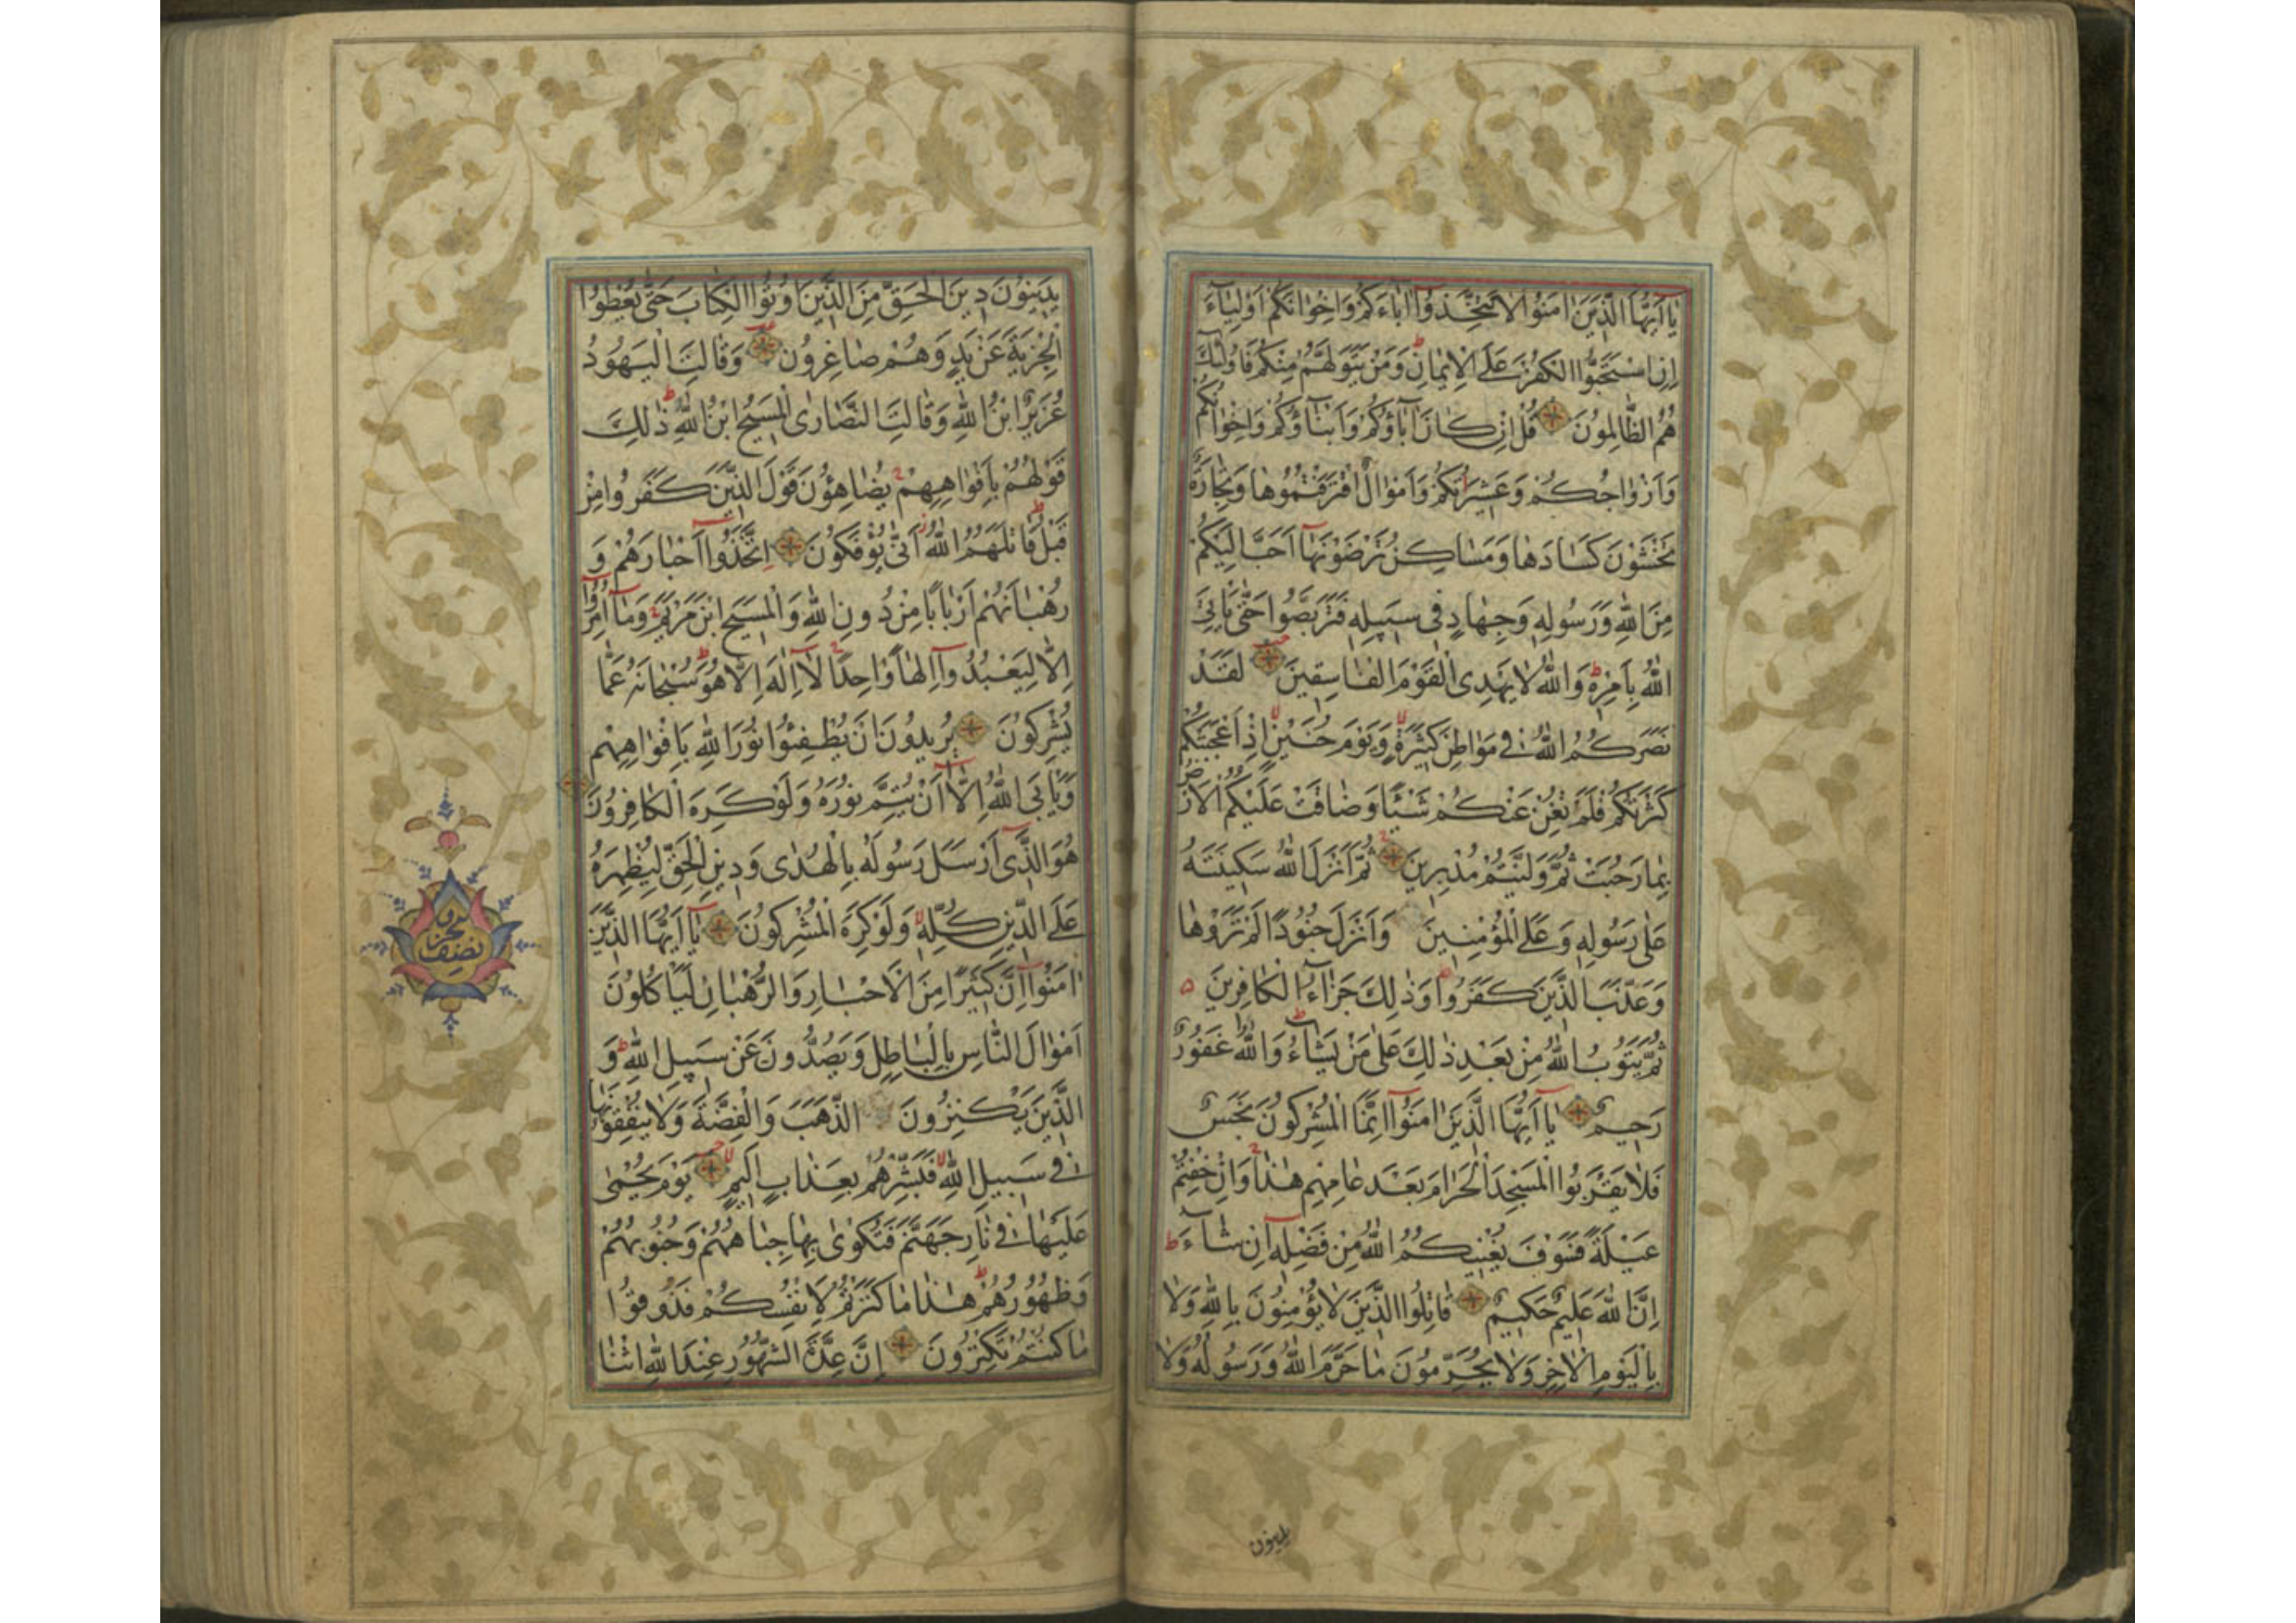 يَا أَيُّهَا الَّذِينَ اٰمَنُوا لَا تَتَّخِذُوا اٰبَاءَكُمْ وَاِخْوَانَكُمْ اَوْلِيَاءَ
اِنِ اسْتَحَبُّوا الْكُفْرَ عَلَى الْاِيمَانِ وَمَنْ يَتَوَلَّهُمْ مِنْكُمْ فَاُولٰئِكَ
هُمُ الظَّالِمُونَ قُلْ اِنْ كَانَ اٰبَاؤُكُمْ وَاَبْنَاؤُكُمْ وَاِخْوَانُكُمْ
وَاَزْوَاجُكُمْ وَعَشِيرَتُكُمْ وَاَمْوَالٌ اقْتَرَفْتُمُوهَا وَتِجَارَةٌ
تَخْشَوْنَ كَسَادَهَا وَمَسَاكِنُ تَرْضَوْنَهَا اَحَبَّ اِلَيْكُمْ
مِنَ اللّٰهِ وَرَسُولِهِ وَجِهَادٍ فِي سَبِيلِهِ فَتَرَبَّصُوا حَتّٰى يَأْتِيَ
اللّٰهُ بِاَمْرِهِ وَاللّٰهُ لَا يَهْدِي الْقَوْمَ الْفَاسِقِينَ لَقَدْ
نَصَرَكُمُ اللّٰهُ فِي مَوَاطِنَ كَثِيرَةٍ وَيَوْمَ حُنَيْنٍ اِذْ اَعْجَبَتْكُمْ
كَثْرَتُكُمْ فَلَمْ تُغْنِ عَنْكُمْ شَيْئًا وَضَاقَتْ عَلَيْكُمُ الْاَرْضُ
بِمَا رَحُبَتْ ثُمَّ وَلَّيْتُمْ مُدْبِرِينَ ثُمَّ اَنْزَلَ اللّٰهُ سَكِينَتَهُ
عَلٰى رَسُولِهِ وَعَلَى الْمُؤْمِنِينَ وَاَنْزَلَ جُنُودًا لَمْ تَرَوْهَا
وَعَذَّبَ الَّذِينَ كَفَرُوا وَذٰلِكَ جَزَاءُ الْكَافِرِينَ
ثُمَّ يَتُوبُ اللّٰهُ مِنْ بَعْدِ ذٰلِكَ عَلٰى مَنْ يَشَاءُ وَاللّٰهُ غَفُورٌ
رَحِيمٌ يَا اَيُّهَا الَّذِينَ اٰمَنُوا اِنَّمَا الْمُشْرِكُونَ نَجَسٌ
فَلَا يَقْرَبُوا الْمَسْجِدَ الْحَرَامَ بَعْدَ عَامِهِمْ هٰذَا وَاِنْ خِفْتُمْ
عَيْلَةً فَسَوْفَ يُغْنِيكُمُ اللّٰهُ مِنْ فَضْلِهِ اِنْ شَاءَ
اِنَّ اللّٰهَ عَلِيمٌ حَكِيمٌ قَاتِلُوا الَّذِينَ لَا يُؤْمِنُونَ بِاللّٰهِ وَلَا
بِالْيَوْمِ الْاٰخِرِ وَلَا يُحَرِّمُونَ مَا حَرَّمَ اللّٰهُ وَرَسُولُهُ وَلَا
يدينون
يَدِينُونَ دِينَ الْحَقِّ مِنَ الَّذِينَ اُوتُوا الْكِتَابَ حَتّٰى يُعْطُوا
الْجِزْيَةَ عَنْ يَدٍ وَهُمْ صَاغِرُونَ وَقَالَتِ الْيَهُودُ
عُزَيْرٌ ابْنُ اللّٰهِ وَقَالَتِ النَّصَارَى الْمَسِيحُ ابْنُ اللّٰهِ ذٰلِكَ
قَوْلُهُمْ بِاَفْوَاهِهِمْ يُضَاهِؤُنَ قَوْلَ الَّذِينَ كَفَرُوا مِنْ
قَبْلُ قَاتَلَهُمُ اللّٰهُ اَنّٰى يُؤْفَكُونَ اِتَّخَذُوا اَحْبَارَهُمْ وَ
رُهْبَانَهُمْ اَرْبَابًا مِنْ دُونِ اللّٰهِ وَالْمَسِيحَ ابْنَ مَرْيَمَ وَمَا اُمِرُوا
اِلَّا لِيَعْبُدُوا اِلٰهًا وَاحِدًا لَا اِلٰهَ اِلَّا هُوَ سُبْحَانَهُ عَمَّا
يُشْرِكُونَ يُرِيدُونَ اَنْ يُطْفِئُوا نُورَ اللّٰهِ بِاَفْوَاهِهِمْ
وَيَأْبَى اللّٰهُ اِلَّا اَنْ يُتِمَّ نُورَهُ وَلَوْ كَرِهَ الْكَافِرُونَ
هُوَ الَّذِي اَرْسَلَ رَسُولَهُ بِالْهُدٰى وَدِينِ الْحَقِّ لِيُظْهِرَهُ
عَلَى الدِّينِ كُلِّهِ وَلَوْ كَرِهَ الْمُشْرِكُونَ يَا اَيُّهَا الَّذِينَ
اٰمَنُوا اِنَّ كَثِيرًا مِنَ الْاَحْبَارِ وَالرُّهْبَانِ لَيَأْكُلُونَ
اَمْوَالَ النَّاسِ بِالْبَاطِلِ وَيَصُدُّونَ عَنْ سَبِيلِ اللّٰهِ وَ
الَّذِينَ يَكْنِزُونَ الذَّهَبَ وَالْفِضَّةَ وَلَا يُنْفِقُونَهَا
فِي سَبِيلِ اللّٰهِ فَبَشِّرْهُمْ بِعَذَابٍ اَلِيمٍ يَوْمَ يُحْمٰى
عَلَيْهَا فِي نَارِ جَهَنَّمَ فَتُكْوٰى بِهَا جِبَاهُهُمْ وَجُنُوبُهُمْ
وَظُهُورُهُمْ هٰذَا مَا كَنَزْتُمْ لِاَنْفُسِكُمْ فَذُوقُوا
مَا كُنْتُمْ تَكْنِزُونَ اِنَّ عِدَّةَ الشُّهُورِ عِنْدَ اللّٰهِ اثْنَا